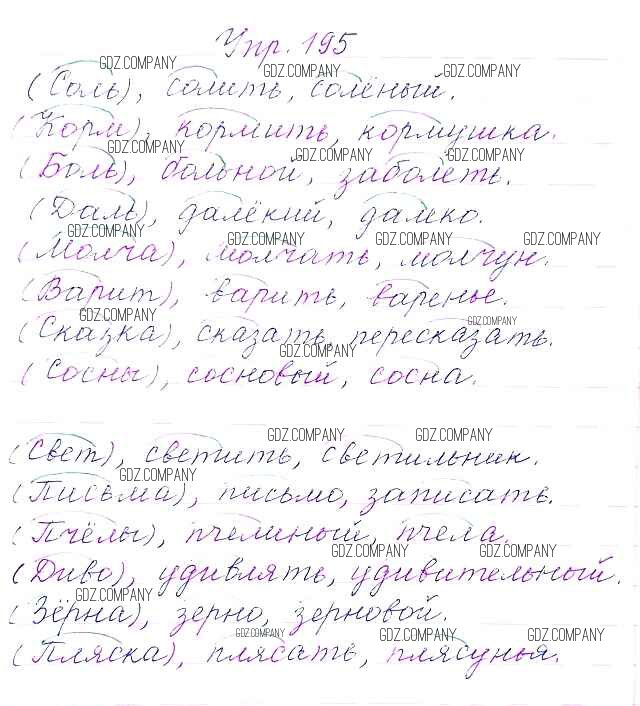 Упр. 195
GDZ.COMPANY GDZ.COMPANY GDZ.COMPANY
(Соль), солить, солёный.
(Корм), кормить, кормушка.
GDZ.COMPANY GDZ.COMPANY GDZ.COMPANY
(Боль), больной, заболеть.
(Даль), далёкий, далеко.
GDZ.COMPANY GDZ.COMPANY GDZ.COMPANY GDZ.COMPANY
(Молча), молчать, молчун.
(Варит), варить, варенье.
GDZ.COMPANY GDZ.COMPANY
(Сказка), сказать, пересказать.
GDZ.COMPANY
(Сосны), сосновый, сосна.
GDZ.COMPANY GDZ.COMPANY
(Свет), светить, светильник.
GDZ.COMPANY
(Письма), письмо, записать.
(Пчёлы), пчелиный, пчела.
GDZ.COMPANY GDZ.COMPANY
(Диво), удивлять, удивительный.
GDZ.COMPANY
(Зёрна), зерно, зерновой.
GDZ.COMPANY GDZ.COMPANY GDZ.COMPANY
(Пляска), плясать, плясунья.